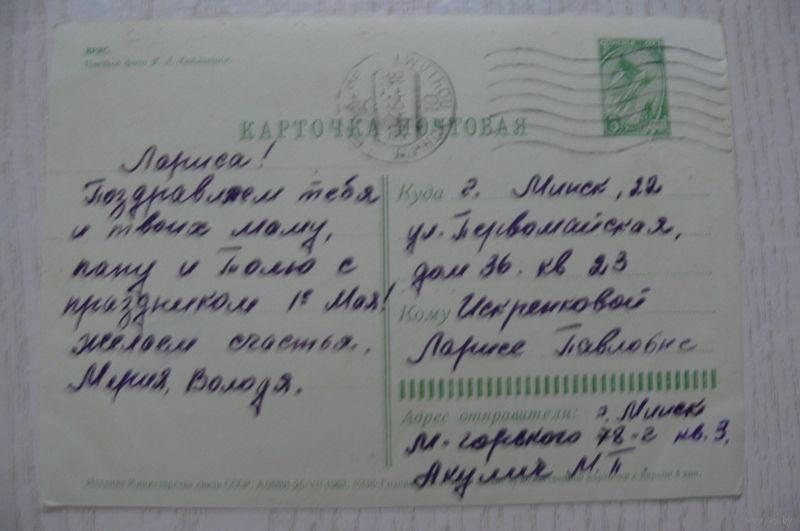 ИРИС.
Цветное фото
КАРТОЧКА ПОЧТОВАЯ
Лариса!
Поздравляем тебя
и твоих маму,
папу и Толю с
праздником 1е Мая!
желаем счастья.
Мерия, Володя.
Куда г. Минск, 22
ул. Первомайская,
дом 36. кв 23
Кому Искренковой
Ларисе Павловне
Адрес отправителя: г. Минск
М-Горького 78-2 кв. 3,
Акулич М.П.
Издание Министерства связи СССР.